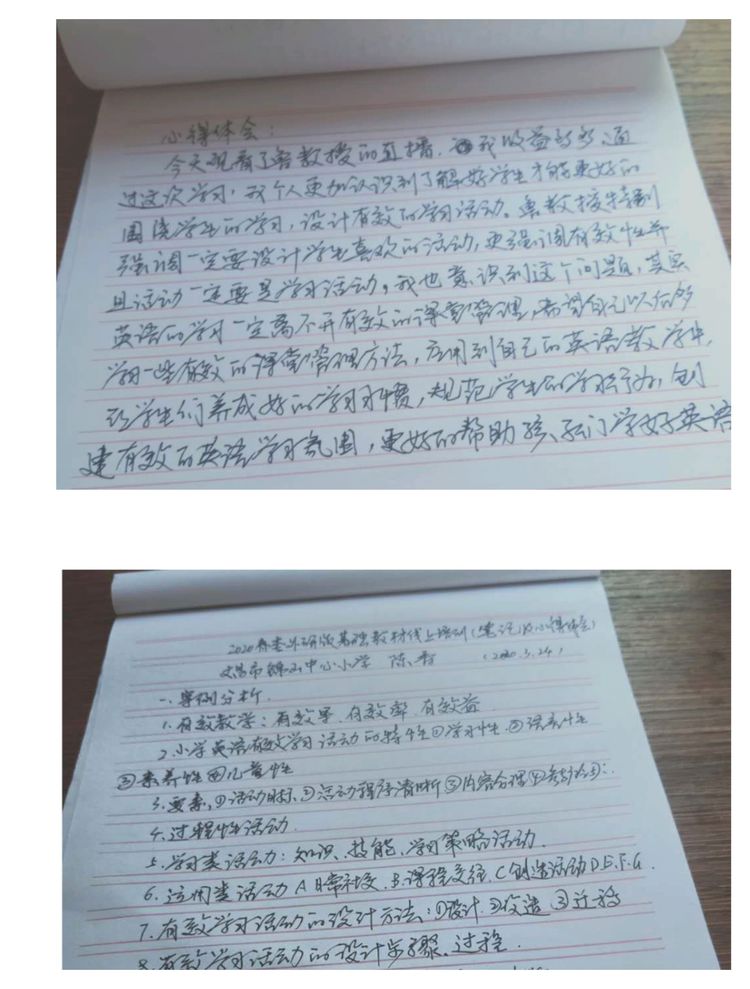 心得体会:
今天观看了鲁教授的直播,我收益颇多,通
过这次学习,我个人更加认识到了解好学生才能更好的
围绕学生的学习,设计有效的学习活动。鲁教授特别
强调一定要设计学生喜欢的活动,更强调有效性并
且活动一定要是学习活动。我也意识到这个问题,其实
英语的学习一定离不开有效的课堂管理,希望自己以后多
学习一些有效的课堂管理方法,应用到自己的英语教学中,
让学生们养成好的学习习惯,规范学生的学习行为,创
建有效的英语学习氛围,更好的帮助孩子们学好英语
2020春季外研版基础教材线上培训(笔记及心得体会)
中心小学 陈 (2020.3.24)
一、案例分析
1.有效教学:有效果、有效率、有效益
2.小学英语有效学习活动的特性①学习性②语言性
③素养性④儿童性
3.要素,①活动目标②活动程序清晰③内容合理④
4.过程性活动
5.学习类活动:知识、技能、学习策略活动.
6.运用类活动 A日常社交、B.课程交往、C创造活动D.E.F.G.
7.有效学习活动的设计方法:①设计②改造③迁移
8.有效学习活动的设计步骤、过程.